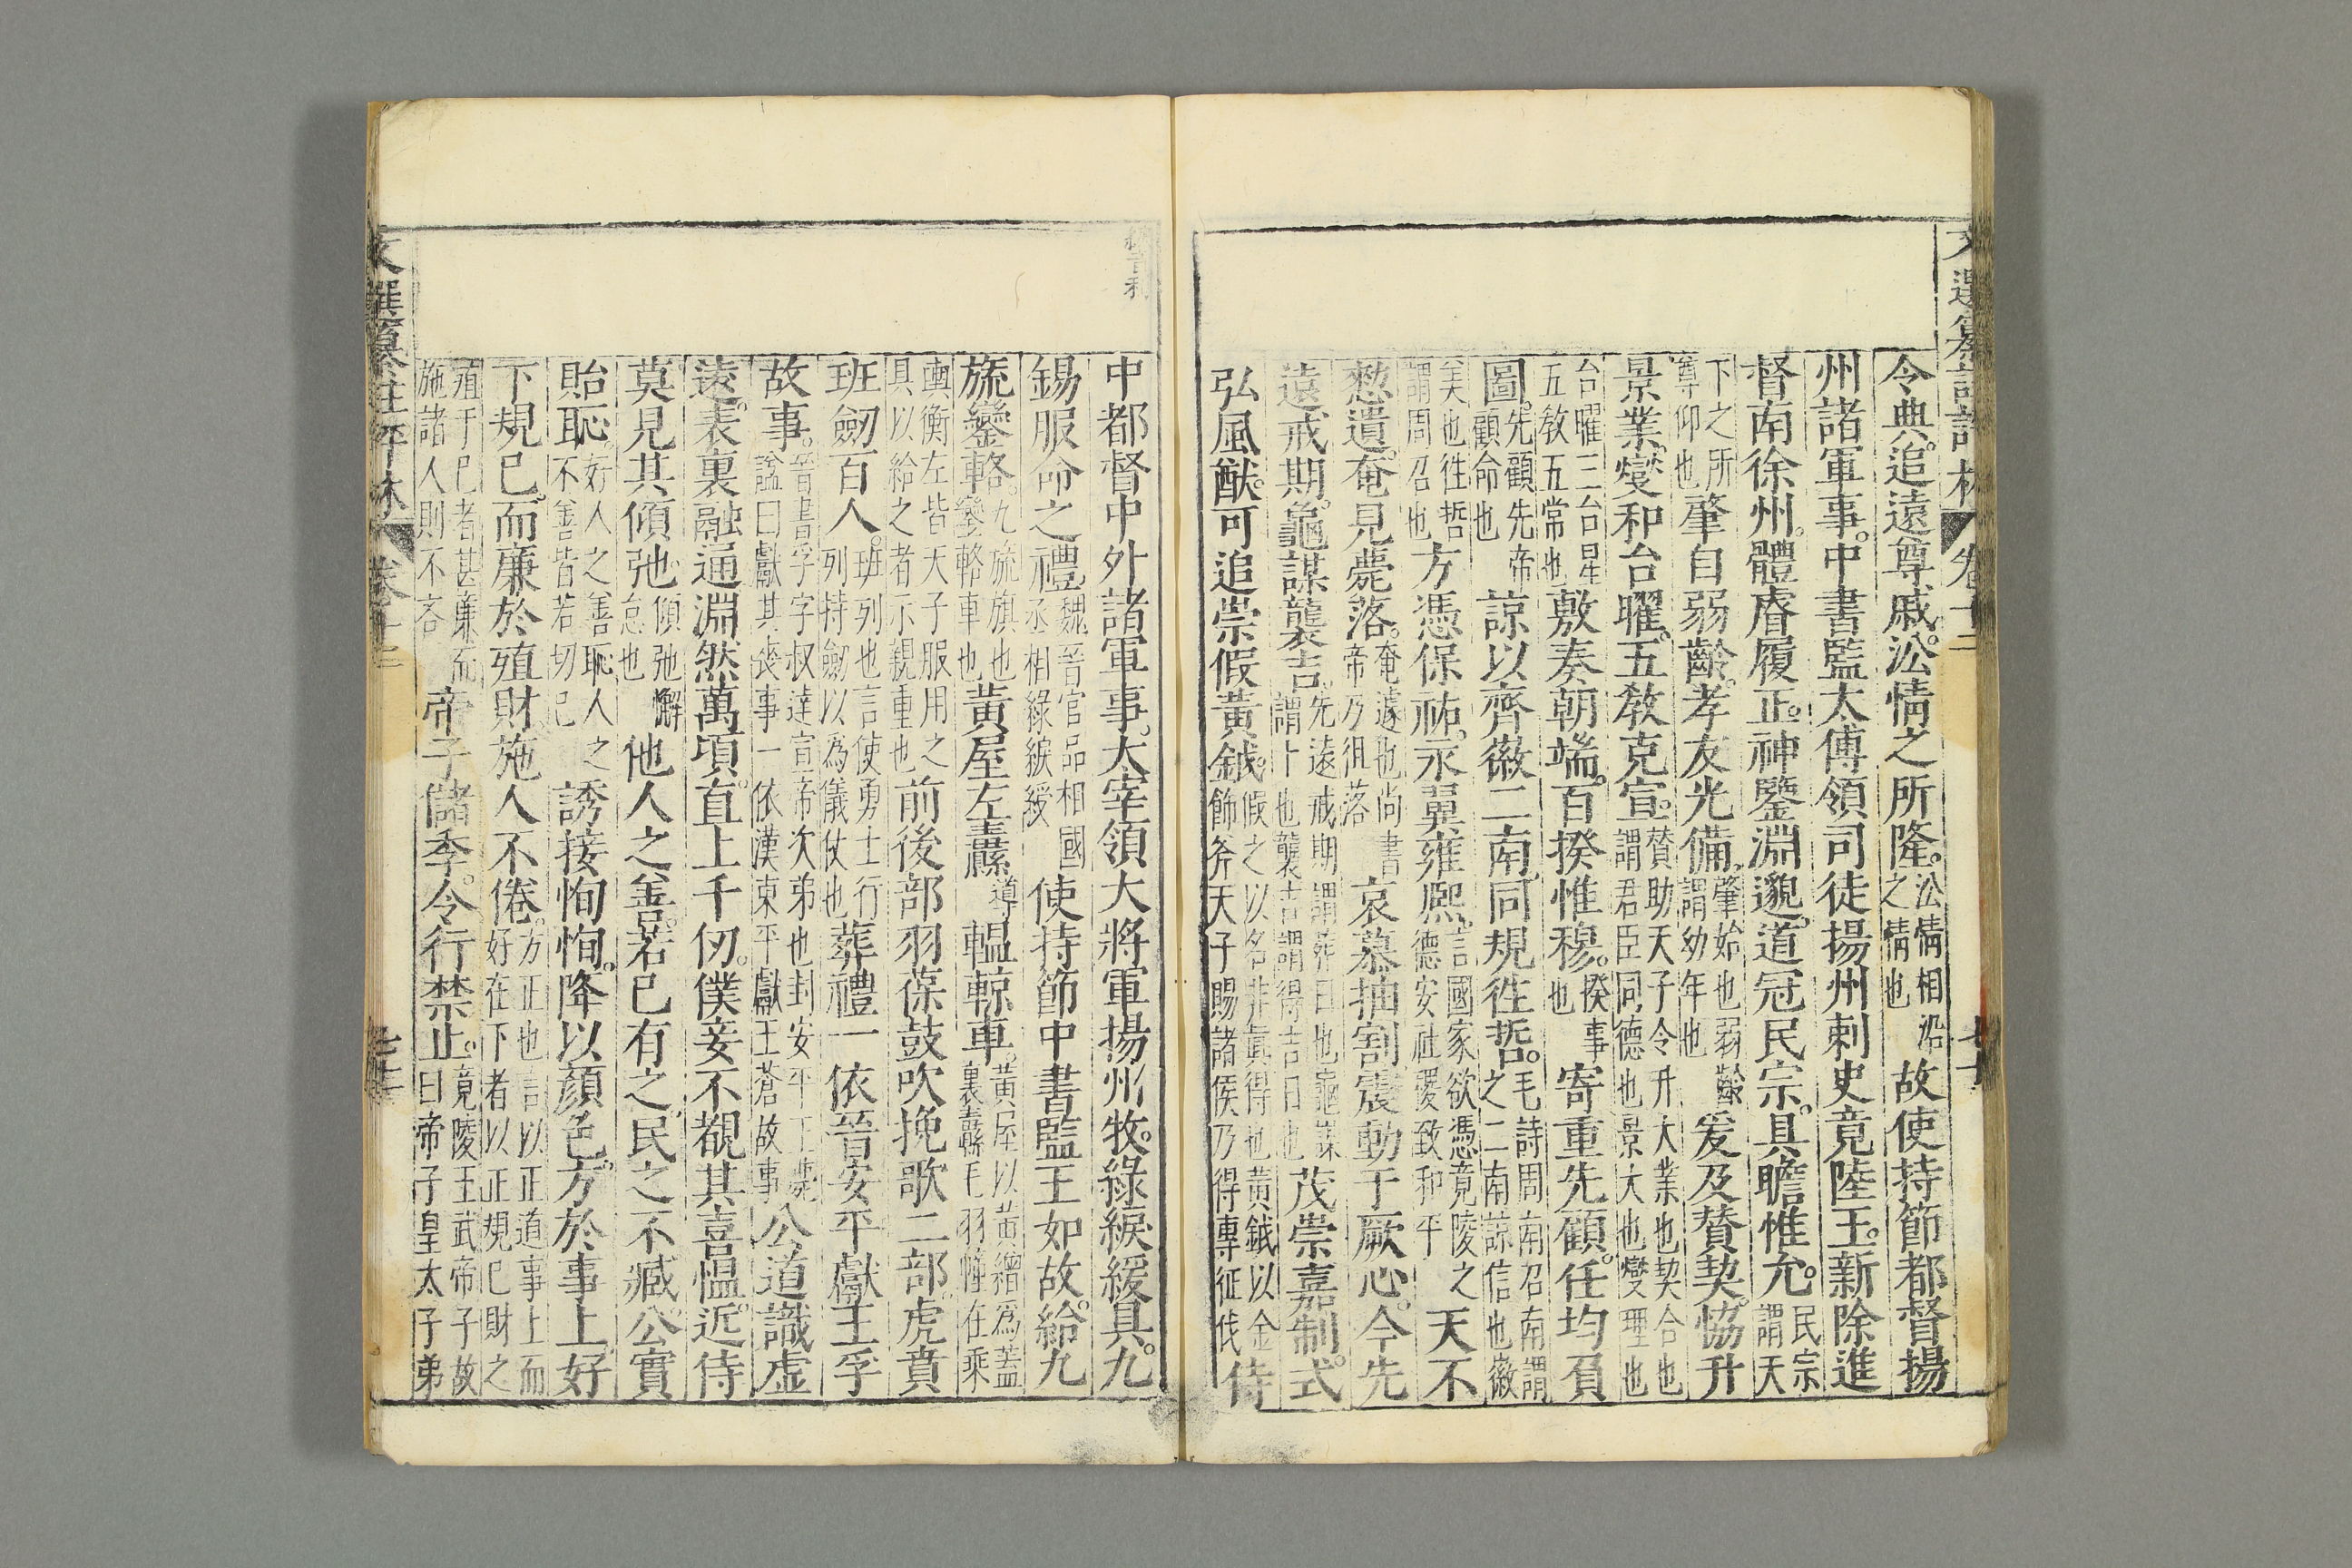 令典。追遠尊戚。㳂情之所隆。㳂情相㳂之情也故使持節都督揚
州諸軍事。中書監太傅領司徒揚州刺史竟陵王。新除進
督南徐州。體睿履正。神鑒淵邈。道冠民宗。具瞻惟允。民宗謂天
下之所尊仰也肇自弱齡。孝友光備。肇始也弱齡謂幼年也爰及贊契。恊升
景業。爕和台曜。五敎克宣。贊助天子令升大業也契合也謂君臣同德也景大也爕理也
台曜三台星五敎五常也敷奏朝端。百揆惟穆。揆事也寄重先顧。任均負
圖。先顧先帝顧命也諒以齊徽二南。同規徃哲。毛詩周南召南謂之二南諒信也徽
美也徃哲謂周召也方憑保祐。永翼雍熙。言國家欲憑竟陵之德安社稷致和平天不
憖遺。奄見薨落。奄遽也尚書帝乃徂落哀慕抽割。震動于厥心。今先
遠戒期。龜謀襲吉。先遠戒期謂葬日也龜謀謂卜也襲吉謂得吉日也茂崇嘉制。式
弘風猷。可追崇假黃鉞。假之以名非眞得也黃鉞以金飾斧天子賜諸侯乃得專征伐侍
中都督中外諸軍事。太宰領大將軍揚州牧。綠綟緩具。九
錫服命之禮。魏晉官品相國丞相綠綟緩使持節中書監王如故。給九
旒鑾輅。九旒旗也鑾輅車也黃屋左纛導轀輬車。黃屋以黃繒爲蓋裏纛毛羽幢在乘
輿衡左皆天子服用之具以給之者示親重也前後部羽葆鼓吹挽歌二部。虎賁
班劒百人。班列也言使勇士行列持劒以爲儀仗也葬禮一依晉安平獻王孚
故事。晉書孚字叔達宣帝次弟也封安平王薨諡曰獻其喪事一依漢東平獻王蒼故事公道識虛
遠。表裏融通。淵然萬頃。直上千仞。僕妾不覩其喜愠。近侍
莫見其傾弛。傾弛懈怠也他人之善。若已有之。民之不臧。公實
貽恥。好人之善恥人之不善皆若切已誘接恂恂。降以顏色。方於事上。好
下規已。而廉於殖財。施人不倦。方正也言以正道事上而好在下者以正規已財之
殖于已者甚廉而施諸人則不吝帝子儲季。令行禁止。竟陵王武帝子故曰帝子皇太子弟